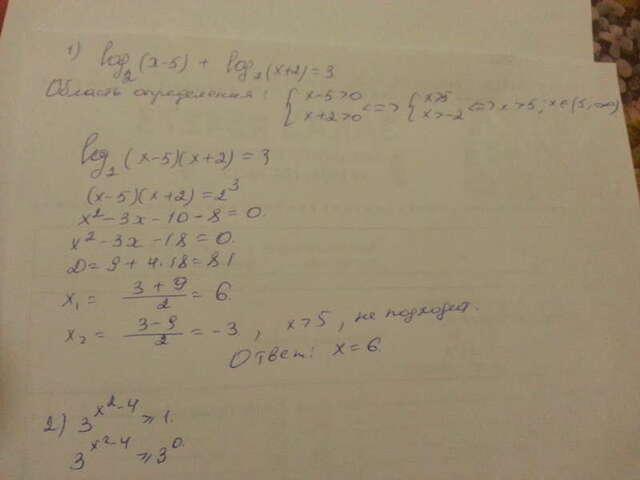 1) log₂(x-5) + log₂(x+2) = 3
Область определения: { x-5>0 x+2>0 <=> { x>5 x>-2 <=> x>5; x∈(5;∞)
log₂(x-5)(x+2) = 3
(x-5)(x+2) = 2³
x²-3x-10-8=0.
x²-3x-18=0.
D=9+4·18=81
x₁= (3+9)/2 = 6.
x₂= (3-9)/2 = -3, x>5, не подходит.
Ответ: x=6.
2) 3^(x²-4) ⩾ 1.
3^(x²-4) ⩾ 3⁰.